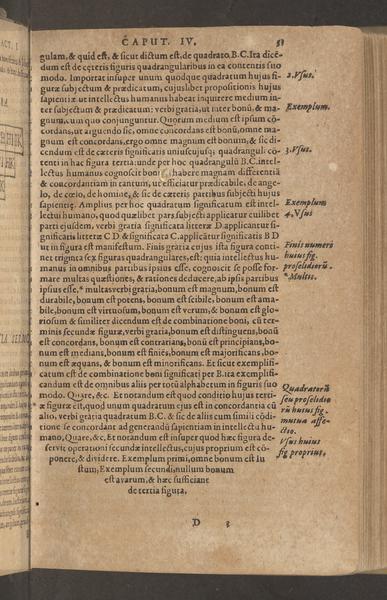 CAPUT. IV.
gulam, & quid est, & sicut dictum est, de quadrato. B. C. Ita dicē-
dum est de cęteris figuris quadrangularibus in ea contentis suo
modo. Importat insuper unum quodque quadratum hujus fi-
guræ subjectum & prædicatum, cujuslibet propositionis hujus
sapientiæ ut intellectus humanus habeat inquirere medium in-
ter subjectum & prædicatum: verbi gratia, ut inter bonū, & ma-
gnum, cum quo conjunguntur. Quorum medium est ipsum cō-
cordans, ut arguendo sic, omne concordans est bonū, omne ma-
gnum est concordans, ergo omne magnum est bonum, & sic di-
cendum est de cæteris significatis uniuscujusq; quadranguli cō-
tenti in hac figura tertia: unde per hoc quadrangulū B. C. intel-
lectus humanus cognoscit boni habere magnam differentiā
& concordantiam in cantum, ut efficiatur prædicabile, de ange-
lo, de cœlo, de homine, & sic de cæteris partibus subjecti hujus
sapientię. Amplius per hoc quadratum significatum est intelle-
ctui humano, quod quælibet pars subjecti applicatur cuilibet
parti ejusdem, verbi gratia significata litteræ D applicantur si-
gnificatis litteræ C D & significata C. applicātur significatis B D
ut in figura est manifestum. Finis gratia cujus ista figura conti-
net triginta sex figuras quadrangulares, est: quia intellectus hu-
manus in omnibus partibus ipsius esse, cognoscit se posse for-
mare multas quæstiones, & rationes deducere, ab ipsis partibus
ipsius esse, * multas verbi gratia, bonum est magnum, bonum est
durabile, bonum est potens, bonum est scibile, bonum est ama-
bile, bonum est virtuosum, bonum est verum, & bonum est glo-
riosum & similiter dicendum est de combinatione boni, cū ter-
minis secundæ figuræ, verbi gratia, bonum est distinguens, bonū
est concordans, bonum est contrarians, bonū est principians, bo-
num est medians, bonum est finiēs, bonum est majorificans, bo-
num est æquans, & bonum est minorificans. Et sicut exemplifi-
catum est de combinatione boni significati per B. ita exemplifi-
candum est de omnibus aliis per totū alphabetum in figuris suo
modo. Quare, &c. Et notandum est quod conditio hujus terti-
æ figuræ est, quod unum quadratum ejus est in concordantia cū
alio, verbi gratia quadratum B. C. & sic de aliis cum simili cōdi-
tione se concordant ad generandū sapientiam in intellectu hu-
mano, Quare, &c. Et notandum est insuper quod hæc figura de-
servit operationi secundæ intellectus, cujus proprium est cō-
ponere, & dividere. Exemplum primi, omne bonum est Iu
stum, Exemplum secundi, nullum bonum
est avarum, & hæc sufficiant
de tertia figura.
D 3
2. Vsus.
Exemplum.
3. Vsus.
Exemplum
4. Vsus
Finis numeri
huius fig.
* Multis.
Quadratorū
rū huius fig.
mutua affe-
ctio.
Vsus huius
fig. proprius.